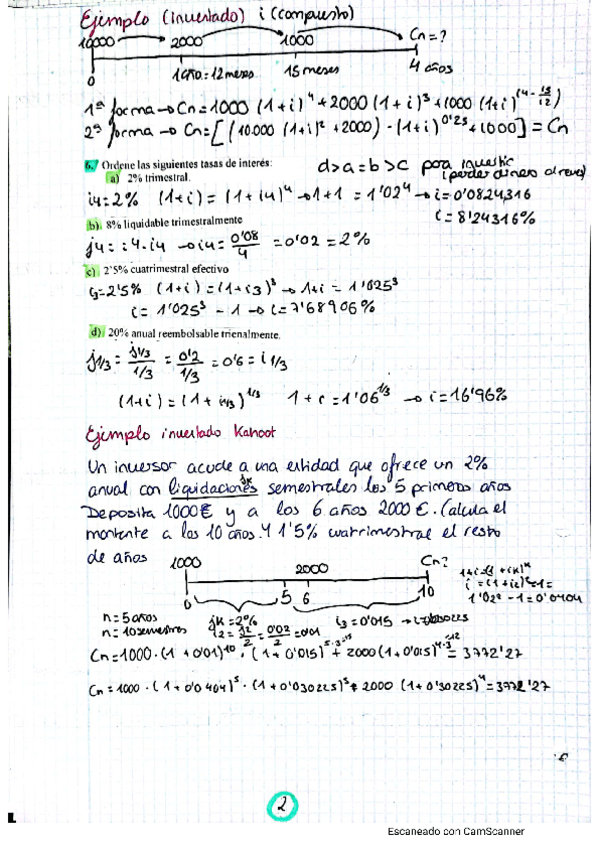 Ejemplo (inventado) i (compuesto)
10000 2000 1000 Cn=?
0 1año=12meses 15meses 4 años
1ª forma → Cn=1000 (1+i)^4 + 2000 (1+i)^3 + 1000 (1+i)^(4-15/12)
2ª forma → Cn=[(10.000 (1+i)^2 + 2000) · (1+i)^0'25 + 1000] = Cn
6. Ordene las siguientes tasas de interés: d>a=b>c para invertir
a) 2% trimestral. (perder dinero al reves)
i4=2% (1+i) = (1+i4)^4 → 1+i = 1'02^4 → i=0'0824316
i=8'24316%
b) 8% liquidable trimestralmente
j4=4·i4 → i4= 0'08/4 = 0'02 = 2%
c) 2'5% cuatrimestral efectivo
i3=2'5% (1+i)=(1+i3)^3 → 1+i = 1'025^3
i= 1'025^3 - 1 → i=7'68906%
d) 20% anual reembolsable trienalmente.
j1/3 = j1/3 / 1/3 = 0'2 / 1/3 = 0'6 = i1/3
(1+i) = (1+i1/3)^1/3 1+i=1'06^1/3 → i=16'96%
Ejemplo inventado Kahoot
Un inversor acude a una entidad que ofrece un 2%
anual con liquidaciones jk semestrales los 5 primeros años
Deposita 1000€ y a los 6 años 2000€. Calcula el
montante a los 10 años. Y 1'5% cuatrimestral el resto
de años
1000 2000 Cn?
0 5 6 10
1+i=(1+ik)^k
i=(1+i2)^2-1=
1'02²-1=0'0404
n=5años jk=2% i3=0'015
n=10semestres i2= j2/2 = 0'02/2 = 0'01
Cn=1000·(1+0'01)^10 · (1+0'015)^5·3=15 + 2000(1+0'015)^4·3=12 = 3772'27
Cn=1000·(1+0'0404)^5 · (1+0'030225)^5 + 2000 (1+0'30225)^4 = 3772'27
2
Escaneado con CamScanner